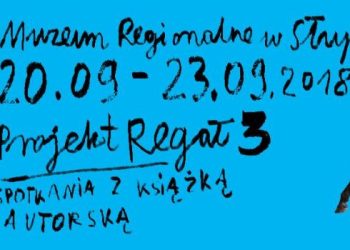 Muzeum Regionalne w
20.09-23.09.2018
Projekt Regał 3
SPOTKANIA Z KSIĄŻKĄ
AUTORSKĄ